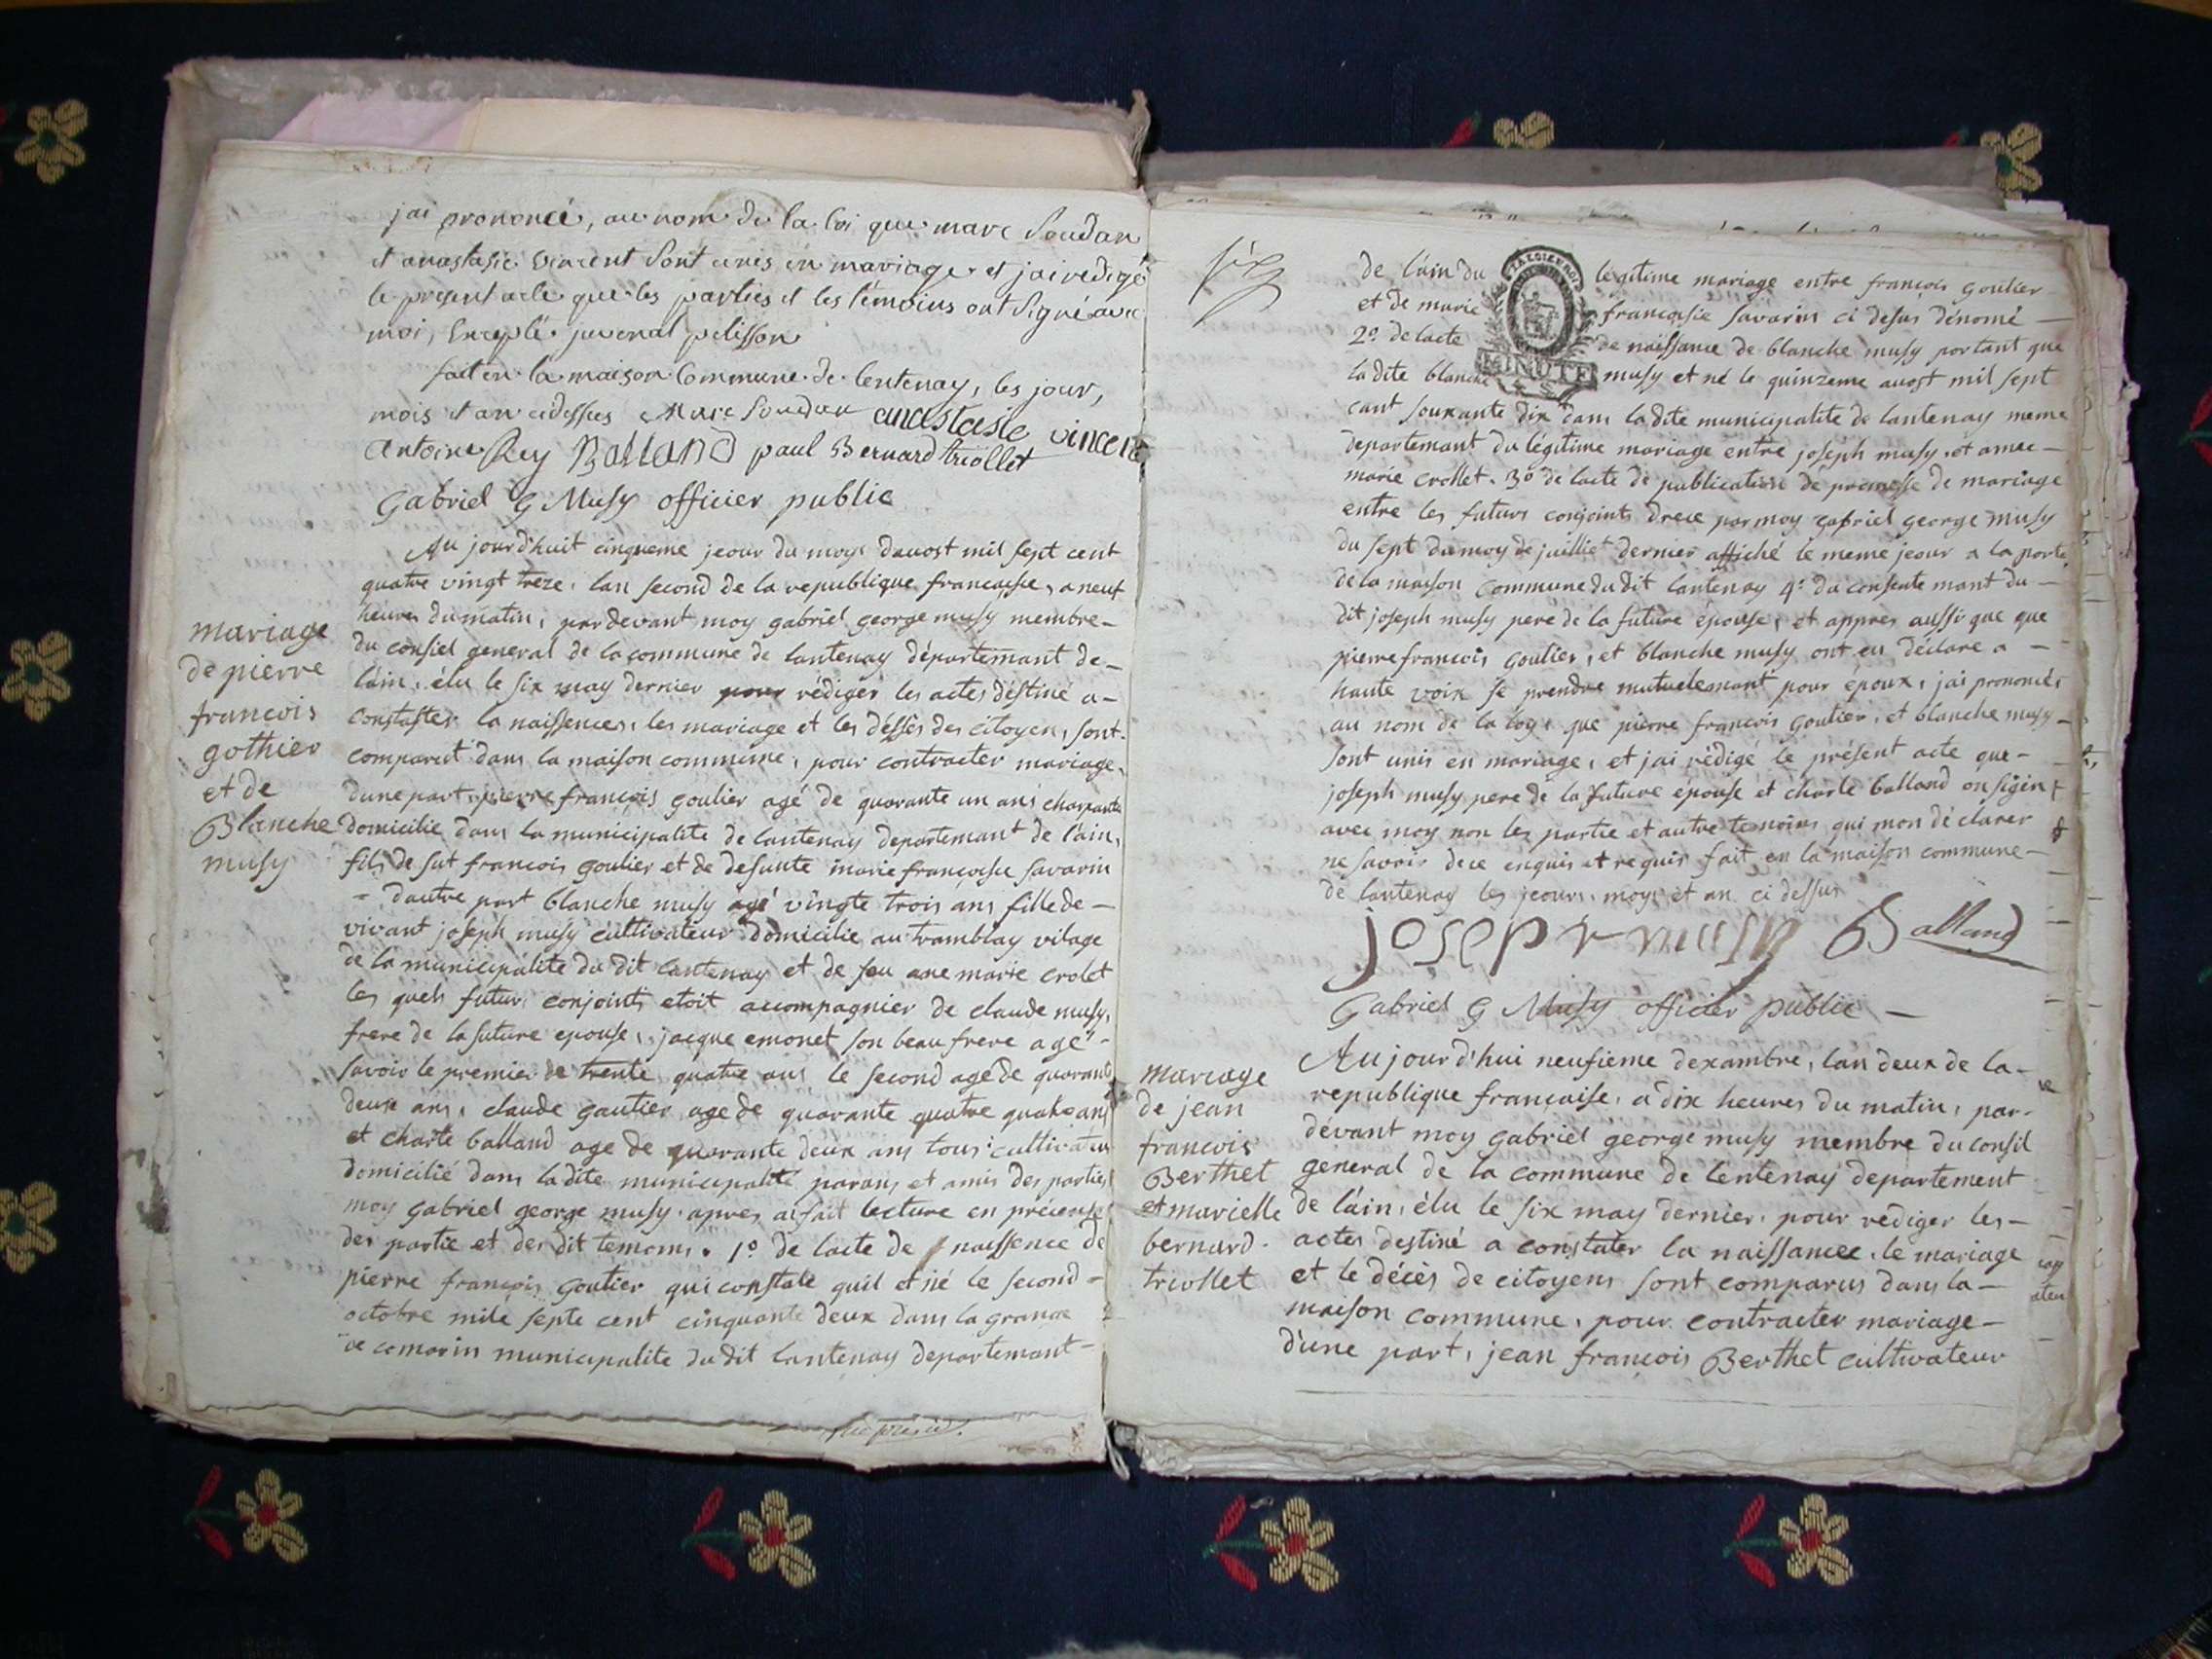 jai prononcé, au nom de la loi que marc Soudan
et anastasie vincent Sont unis en mariage et jai redigé
le present acte que les parties et les témoins ont Signé avec
moi, Excepté juvenal pelisson
fait en la maison Commune de lentenay, les jour,
mois et an cidessus Marc Soudan anastasie vincent
Antoine Rey Balland paul Bernard triollet
Gabriel G Musy officier public
mariage
de pierre
francois
gothier
et de
Blanche
musy
Au jourd'huit cinqueme jeour du moys dauost mil sept cent
quatre vingt treze, lan second de la republique francoisse, a neuf
heures du matin, par devant moy gabriel george musy membre
du consiel general de la commune de lantenay départemant de
láin, élu le six may dernier pour rédiger les actes déstiné a
constaster la naissences, les mariage et les désses des citoyen, sont
comparut dans la maison commune, pour contracter mariage,
dune part, pierre françois goutier agé de quarante un ans charpante
domicilie dans la municipalite de lantenay departemant de l'ain,
fils de fut francois goutier et de defunte marie françoisse savarin
dautre part blanche musy agé vingte trois ans fille de
vivant joseph musy cultivateur domicilie au tramblay vilage
de la municipalite du dit lantenay et de feu ane marie crolet
les quels futurs conjoints etoit accompagnier de claude musy,
frere de la future epouse, jacque emonet son beau frere age
savoir le premier de trente quatre ans le second age de quarante
deux ans, claude gautier age de quarante quatre quatre ans
et charle balland age de quarante deux ans tous cultivateur
domicilié dans ladite municipalité parans et amis des parties
moy gabriel george musy apres ai fait lecture en présense
des partie et des dit temoins. 1º de lacte de naissence de
pierre françois goutier qui constate quil et né le second
octobre mile septe cent cinquante deux dans la grange
de comarin municipalite du dit lantenay departemant
de láin du légitime mariage entre françois goutier
et de marie françoisie savarin ci desus dénomé
2º de lacte de naissance de blanche musy portant que
la dite blanche musy et né le quinzeme auost mil sept
MINUTE
cant souxante dix dans la dite municipalite de lantenay meme
departemant du légitime mariage entre joseph musy et anne
marie crollet. 3º de lacte de publication de promesse de mariage
entre les futurs conjoints drece par moy gabriel george musy
du sept du moy de juilliet dernier affiché le meme jeour a la porte
de la maison commune du dit lantenay 4º du consentemant du
dit joseph musy pere de la future épouse, et appres aussi que que
pierre francois goutier, et blanche musy ont eu déclare a
haute voix se prendre mutuelemant pour époux, jai prononcé,
au nom de la loy, que pierre françois goutier, et blanche musy
sont unis en mariage, et jai rédigé le présent acte que
joseph musy pere de la future epouse et charle balland on signé
avec moy non les partie et autre temoins qui mon déclarer
ne savoir de ce enquis et requis fait en la maison commune
de lantenay les jeours, moys et an ci dessus
joseph musy Balland
Gabriel G Musy officier public
mariage
de jean
francois
Berthet
et marielle
bernard
triollet
Au jourd'hui neufieme dexambre, lan deux de la
republique française, a dix heures du matin, par
devant moy gabriel george musy membre du consil
general de la commune de lentenay departement
de láin, élu le six may dernier, pour rediger les
actes destiné a constater la naissancee, le mariage
et le décès de citoyens sont comparus dans la
maison commune, pour contracter mariage
d'une part, jean françois Berthet cultivateur